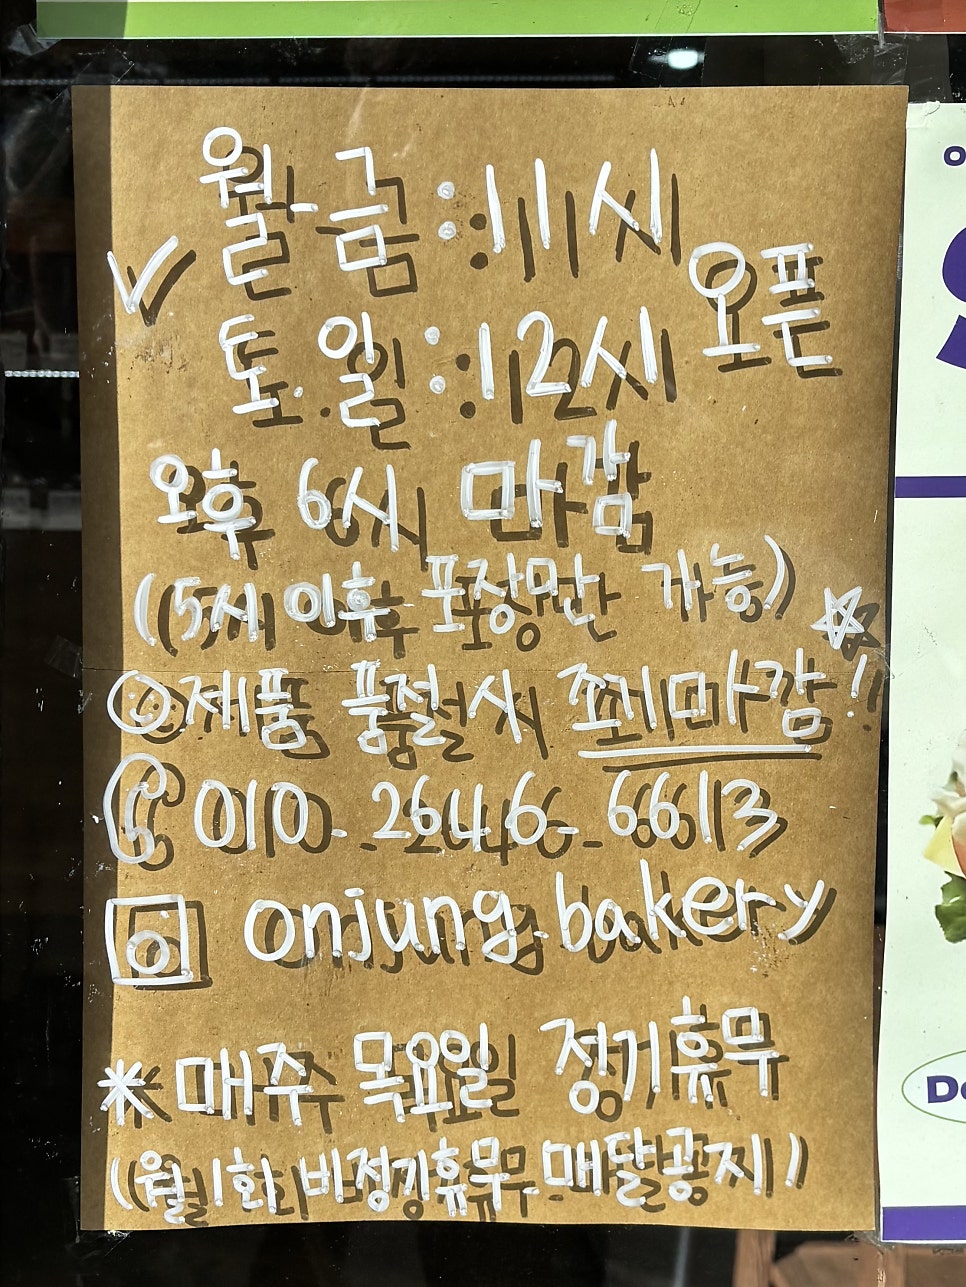 월-금:11시
토.일:12시 오픈
오후 6시 마감
(5시 이후 포장만 가능)
제품 품절시 쪼끼마감!
010-2646-6613
onjung.bakery
* 매주 목요일 정기휴무
(월1회 비정기휴무. 매달공지)